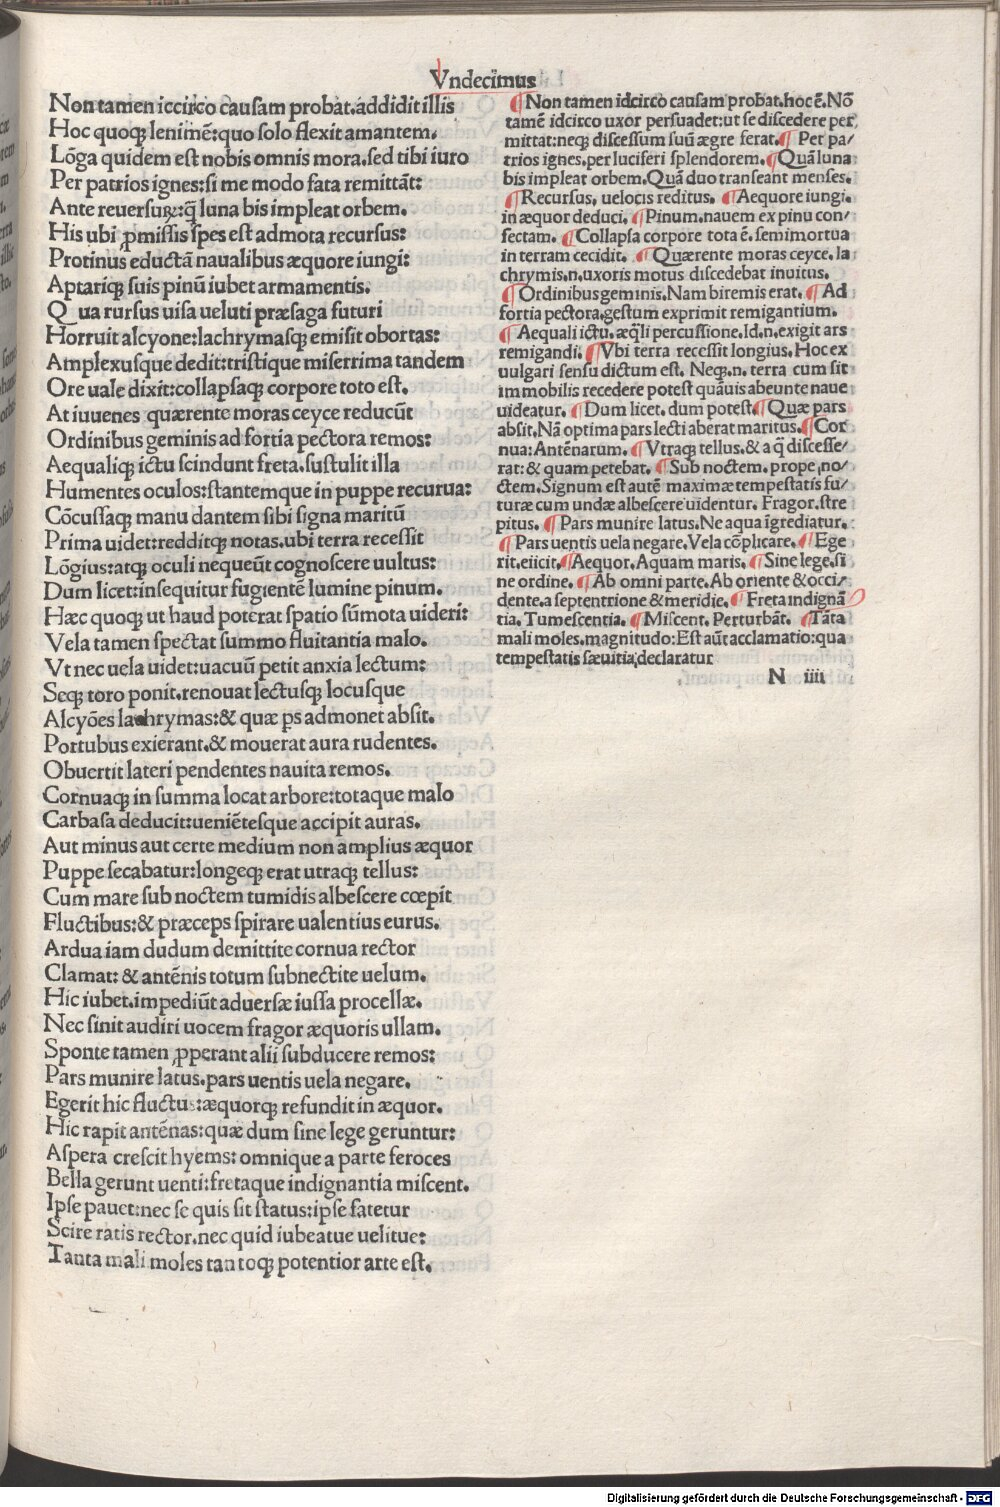 Vndecimus
Non tamen iccirco causam probat.addidit illis
Hoc quoq; lenimē:quo solo flexit amantem.
Lōga quidem est nobis omnis mora.sed tibi iuro
Per patrios ignes:si me modo fata remittāt:
Ante reuersuꝝ:q̄ luna bis impleat orbem.
His ubi ꝓmissis spes est admota recursus:
Protinus eductā naualibus æquore iungi:
Aptariq; suis pinū iubet armamentis.
Qua rursus uisa ueluti præsaga futuri
Horruit alcyone:lachrymasq; emisit obortas:
Amplexusque dedit:tristique miserrima tandem
Ore uale dixit:collapsaq; corpore toto est.
At iuuenes quærente moras ceyce reducūt
Ordinibus geminis ad fortia pectora remos:
Aequaliq; ictu scindunt freta.sustulit illa
Humentes oculos:stantemque in puppe recurua:
Cōcussaq; manu dantem sibi signa maritū
Prima uidet:redditq; notas.ubi terra recessit
Lōgius:atq; oculi nequeūt cognoscere uultus:
Dum licet:insequitur fugientē lumine pinum.
Hæc quoq; ut haud poterat spatio sūmota uideri:
Vela tamen spectat summo fluitantia malo.
Vt nec uela uidet:uacuū petit anxia lectum:
Seq; toro ponit.renouat lectusq; locusque
Alcyōes lachrymas:& quæ ꝑs admonet absit.
Portubus exierant.& mouerat aura rudentes.
Obuertit lateri pendentes nauita remos.
Cornuaq; in summa locat arbore:totaque malo
Carbasa deducit:ueniētesque accipit auras.
Aut minus aut certe medium non amplius æquor
Puppe secabatur:longeq; erat utraq; tellus:
Cum mare sub noctem tumidis albescere cœpit
Fluctibus:& præceps spirare ualentius eurus.
Ardua iam dudum demittite cornua rector
Clamat: & antēnis totum subnectite uelum.
Hic iubet.impediūt aduersæ iussa procellæ.
Nec sinit audiri uocem fragor æquoris ullam.
Sponte tamen ꝓperant alii subducere remos:
Pars munire latus.pars uentis uela negare.
Egerit hic fluctus:æquorq; refundit in æquor.
Hic rapit antēnas:quæ dum sine lege geruntur:
Aspera crescit hyems: omnique a parte feroces
Bella gerunt uenti:fretaque indignantia miscent.
Ipse pauet:nec se quis sit status:ipse fatetur
Scire ratis rector.nec quid iubeatue uelitue:
Tanta mali moles tantoq; potentior arte est.
¶Non tamen idcirco causam probat.hoc ē.Nō
tamē idcirco uxor persuadet:ut se discedere per
mittat:neq; discessum suū ægre ferat.¶Per pa/
trios ignes.per luciferi splendorem.¶Quā luna
bis impleat orbem.Quā duo transeant menses.
¶Recursus, uelocis reditus. ¶Aequore iungi.
in æquor deduci.¶Pinum.nauem ex pinu con/
fectam.¶Collapsa corpore tota ē.semimortua
in terram cecidit. ¶Quærente moras ceyce.la
chrymis.n.uxoris motus discedebat inuitus.
¶Ordinibus geminis.Nam biremis erat. ¶Ad
fortia pectora.gestum exprimit remigantium.
¶Aequali ictu.æq̄li percussione.Id.n.exigit ars
remigandi.¶Vbi terra recessit longius.Hoc ex
uulgari sensu dictum est. Neq;.n. terra cum sit
immobilis recedere potest quāuis abeunte naue
uideatur. ¶Dum licet.dum potest.¶Quæ pars
absit.Nā optima pars lecti aberat maritus.¶Cor
nua: Antēnarum. ¶Vtraq; tellus.& a q̄ discesse/
rat:& quam petebat. ¶Sub noctem.prope.no/
ctem.Signum est autē maximæ tempestatis fu/
turæ cum undæ albescere uidentur. Fragor.stre
pitus. ¶Pars munire latus.Ne aqua īgrediatur.
¶Pars uentis uela negare.Vela cōplicare.¶Ege
rit.eiicit.¶Aequor.Aquam maris. ¶Sine lege.si
ne ordine. ¶Ab omni parte.Ab oriente & occi/
dente.a septentrione & meridie.¶Freta indignā
tia. Tumescentia. ¶Miscent. Perturbāt. ¶Tāta
mali moles.magnitudo:Est aūt acclamatio:qua
tempestatis sæuitia declaratur
N iiii
Digitalisierung gefördert durch die Deutsche Forschungsgemeinschaft - DFG